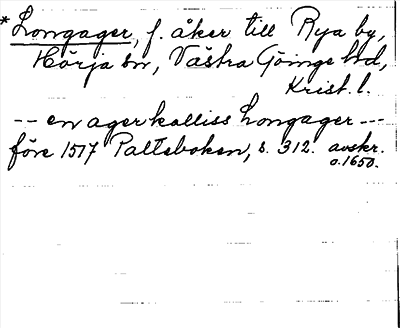 *Longager, f. åker till Rya by,
Hörja sn, Västra Göinge hd,
Krist. l.
-- en ager kalliss Longager ---
före 1517 Palteboken, s. 312. avskr.
o. 1650.